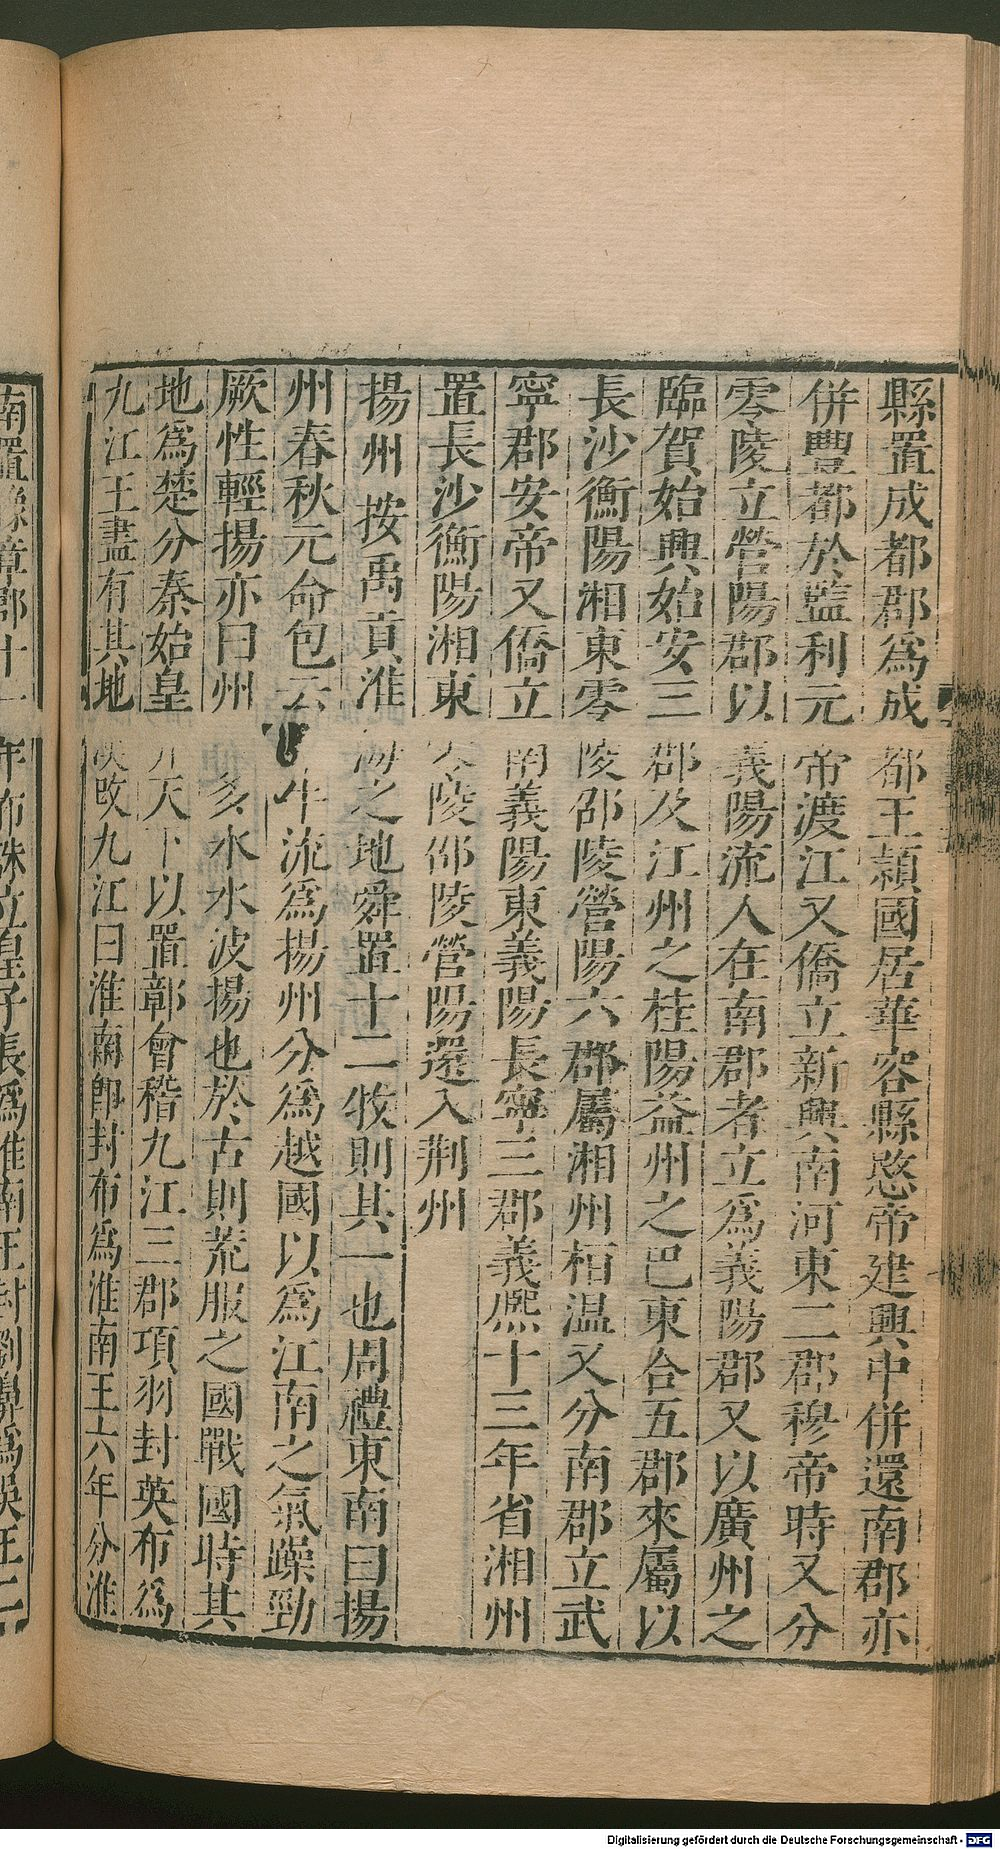 縣置成都郡為成都王穎國居華容縣愍帝建興中併還南郡亦
併豐都於監利元帝渡江又僑立新興南河東二郡穆帝時又分
零陵立營陽郡以義陽流人在南郡者立為義陽郡又以廣州之
臨賀始興始安三郡及江州之桂陽益州之巴東合五郡來屬以
長沙衡陽湘東零陵邵陵營陽六郡屬湘州桓温又分南郡立武
寧郡安帝又僑立南義陽東義陽長寧三郡義熈十三年省湘州
置長沙衡陽湘東零陵邵陵營陽還入荆州
揚州 按禹貢淮海之地舜置十二牧則其一也周禮東南曰揚
州春秋元命包云牛流為揚州分為越國以為江南之氣躁勁
厥性輕揚亦曰州多水水波揚也於古則荒服之國戰國時其
地為楚分秦始皇并天下以置鄣會稽九江三郡項羽封英布為
九江王盡有其地漢改九江曰淮南即封布為淮南王六年分淮
南置豫章郡十一年布誅立皇子長為淮南王封劉濞為吳王二
Digitalisierung gefördert durch die Deutsche Forschungsgemeinschaft - DFG